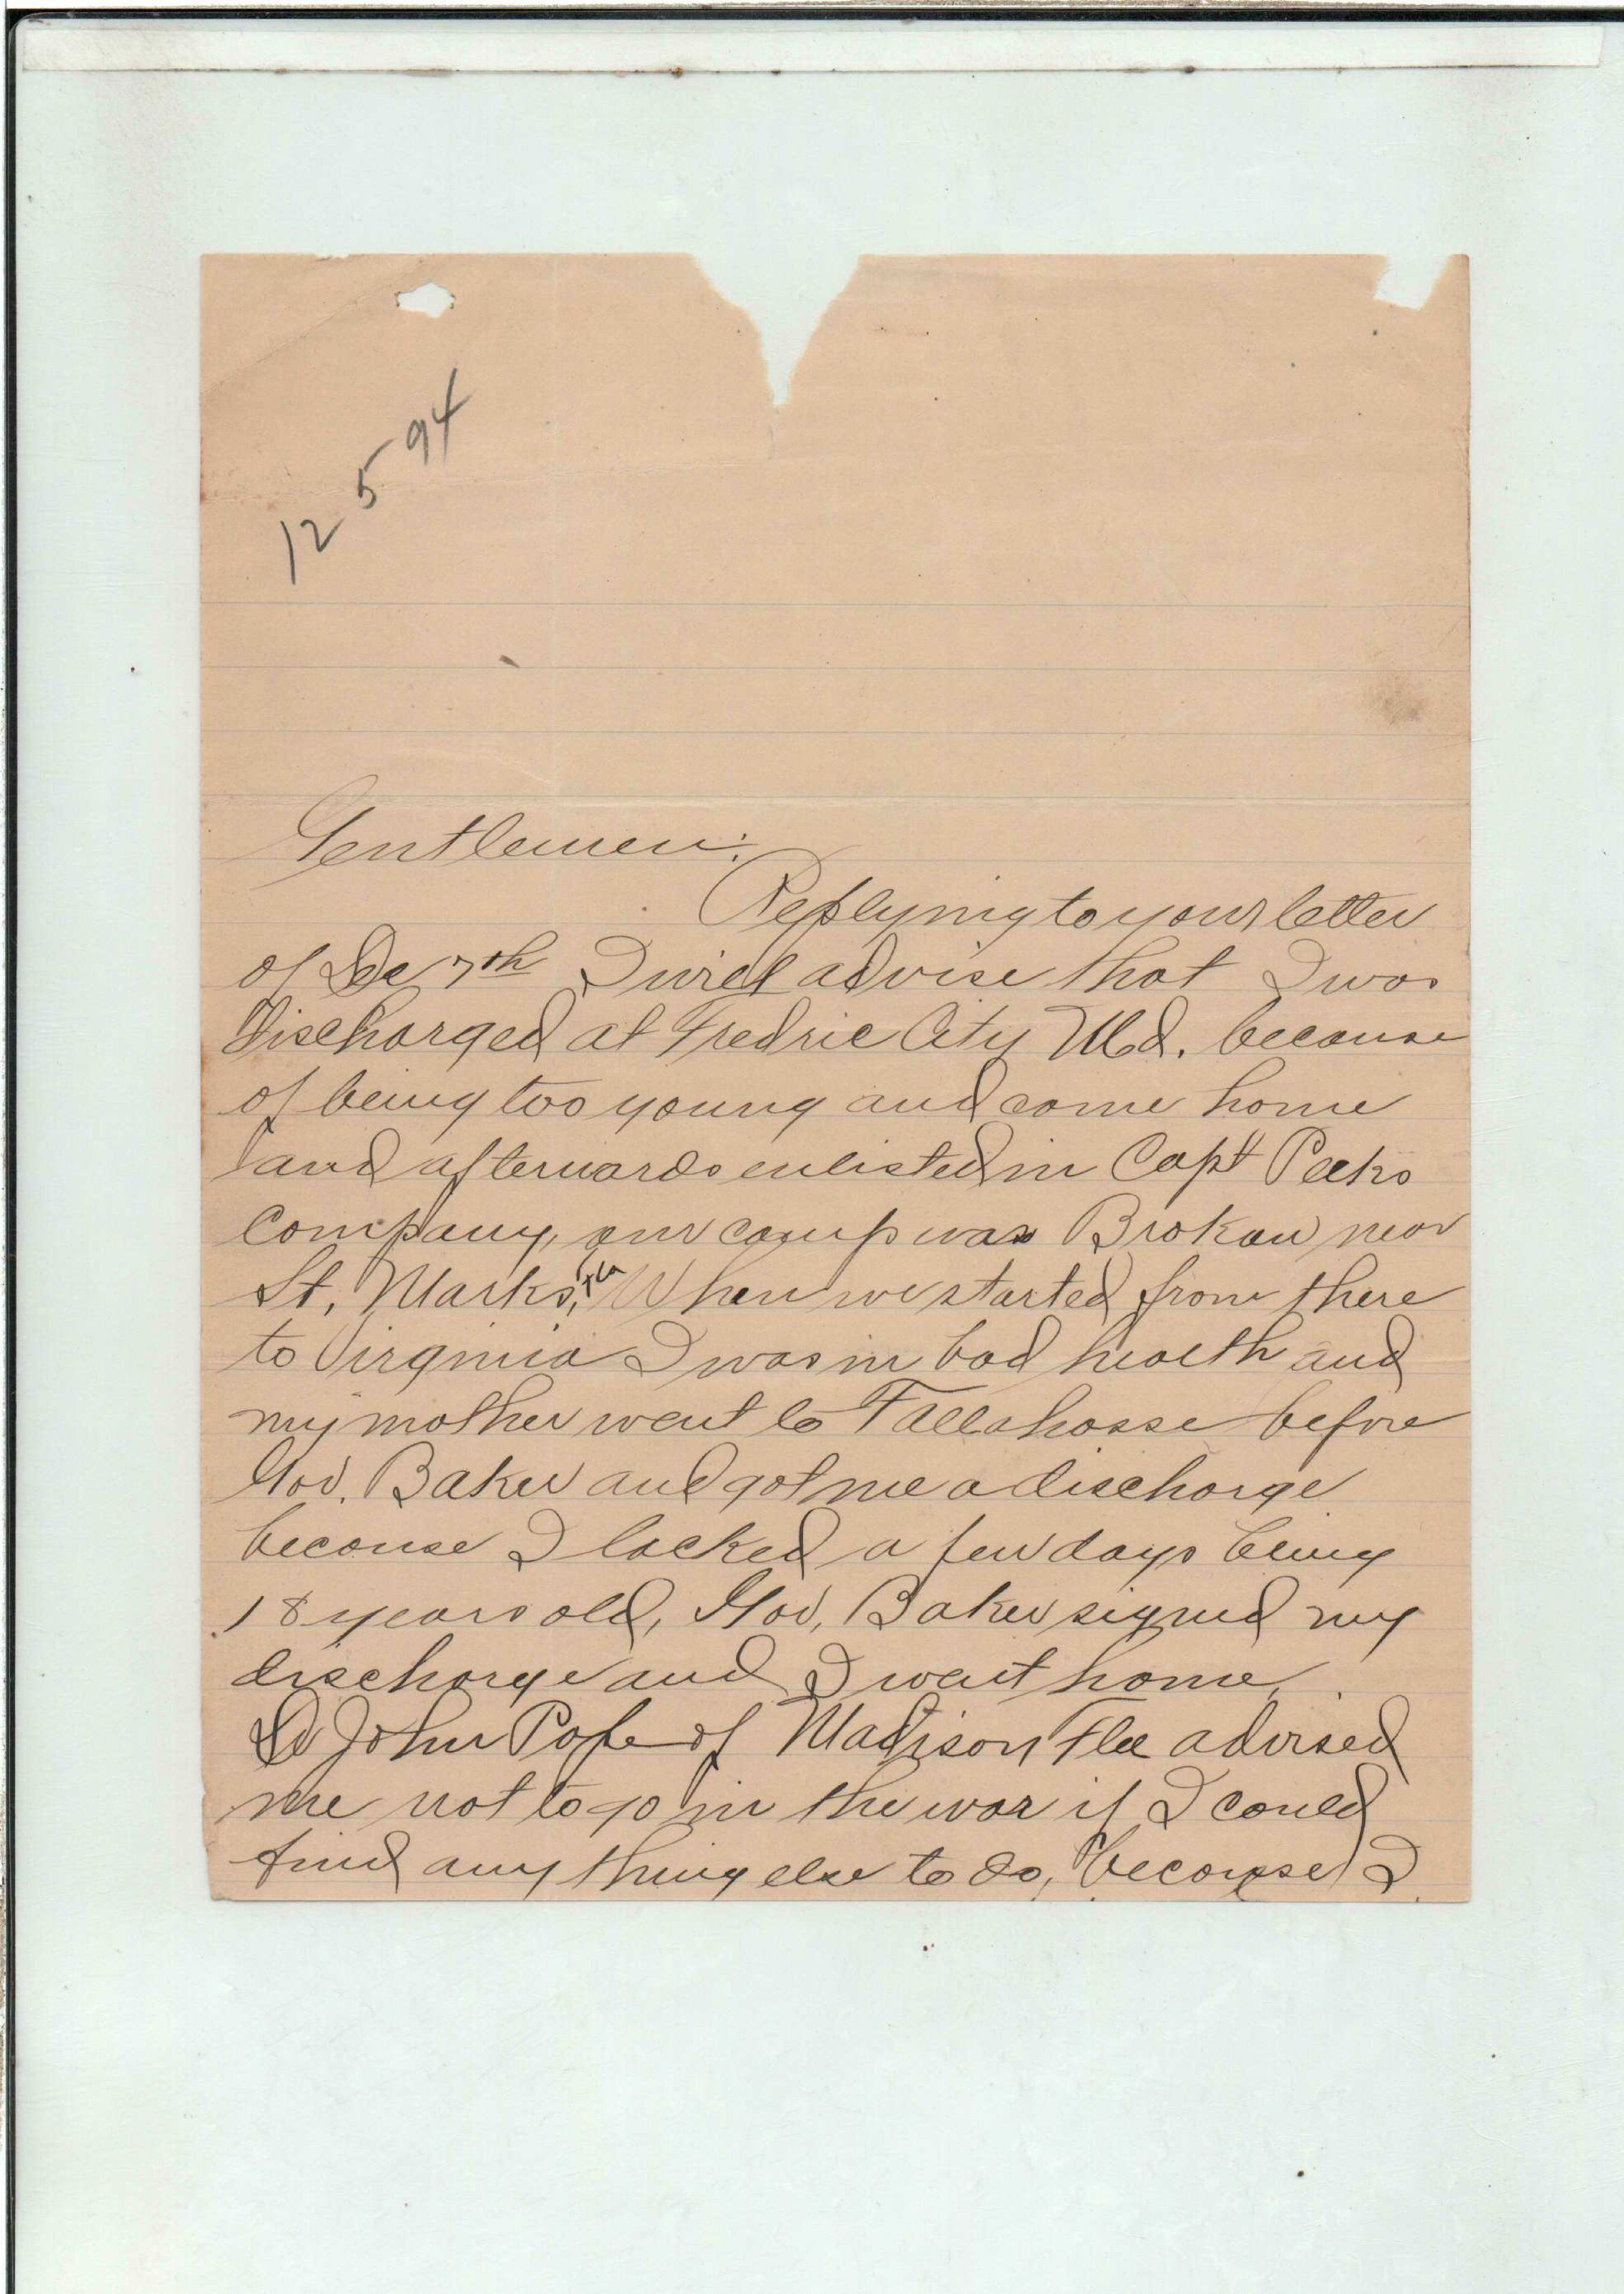 12 5 94
Gentlemen:
Replying to your letter
of De 7th I will advise that I was
discharged at Fredric City Md. because
of being too young and come home
and afterwards enlisted in Capt Peeks
Company, our camp was Brokaw near
St. Marks, Fla When we started from there
to Virginia I was in bad health and
my mother went to Tallahasse before
Gov. Baker and got me a discharge
because I lacked a few days being
18 years old, Gov, Baker signed my
discharge and I went home.
Dr John Pope of Madison Fla advised
me not to go in the war if I could
find any thing else to do, because I